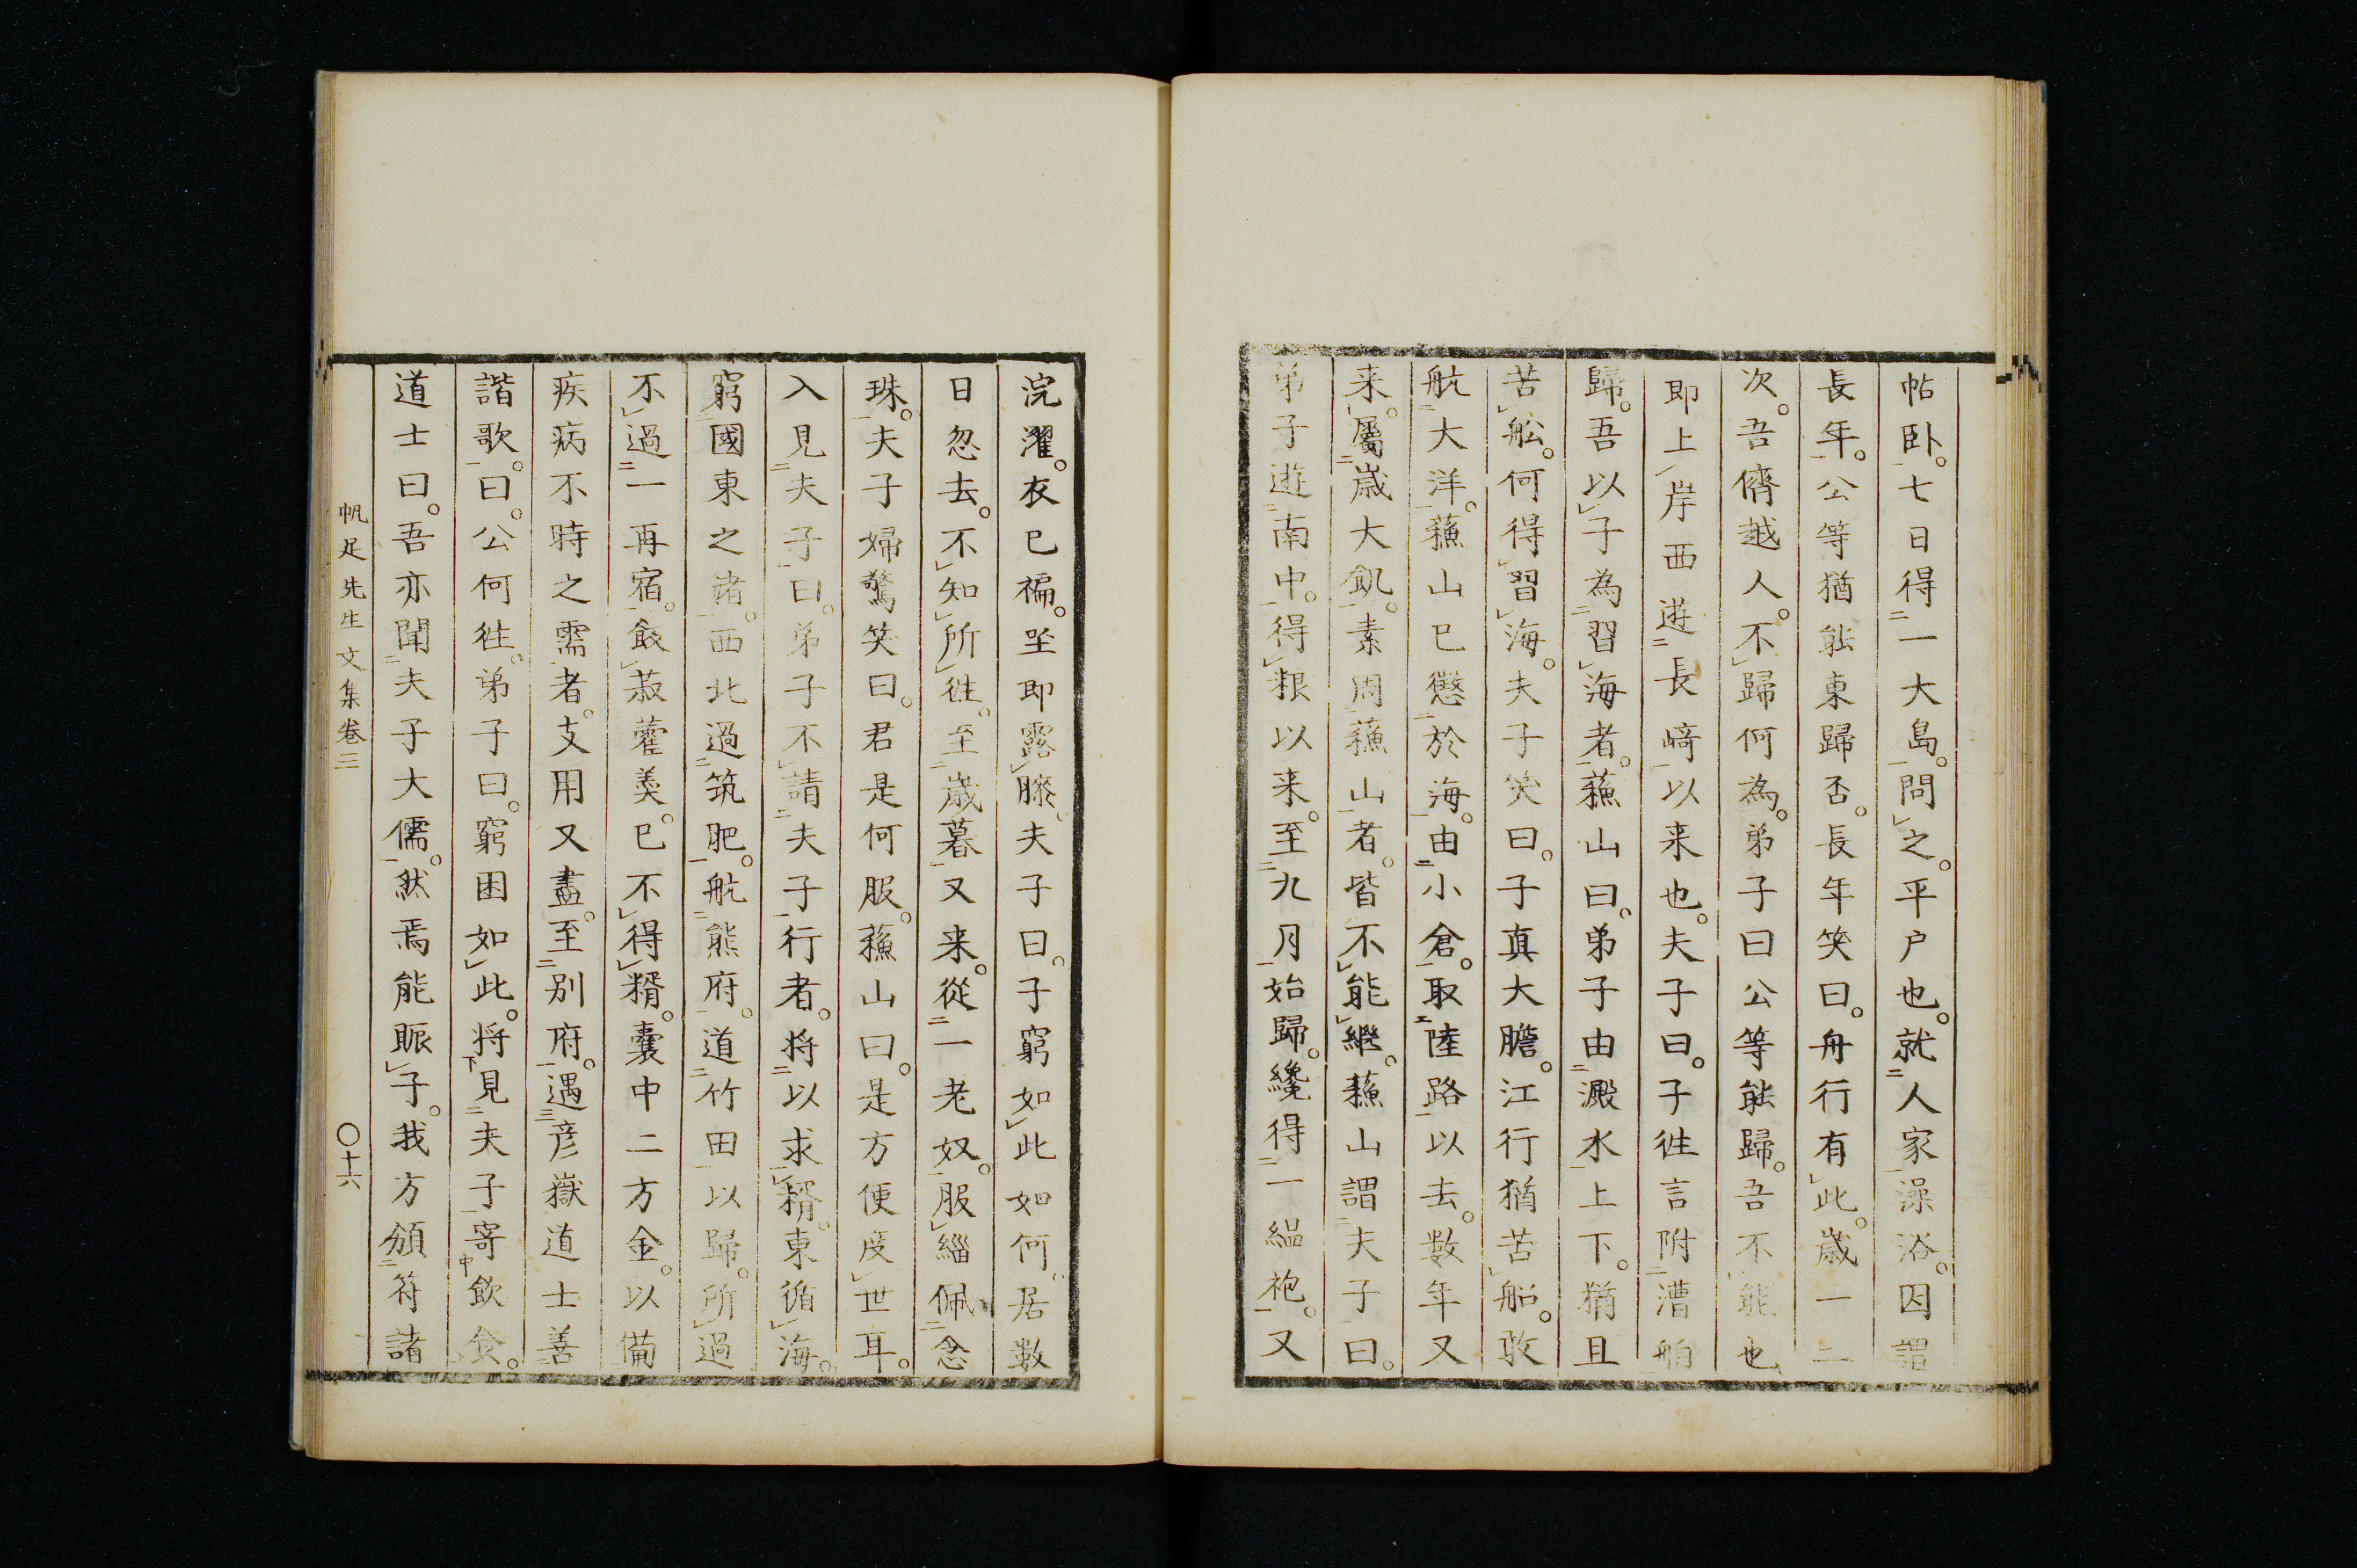 帖臥。七日得一大島。問之。平戸也。就人家澡浴。因謂
長年。公等猶能東歸否。長年笑曰。舟行有此。歳一二
次。吾儕越人。不歸何為。弟子曰公等能歸。吾不能也
即上岸西遊長﨑以来也。夫子曰。子徃言附漕舶
歸。吾以子為習海者。蘓山曰。弟子由澱水上下。猶且
苦舩。何得習海。夫子笑曰。子真大膽。江行猶苦船。敢
航大洋。蘓山已懲於海。由小倉。取陸路以去。數年又
来。屬歳大飢。素周蘓山者。皆不能繼。蘓山謂夫子曰。
弟子遊南中。得粮以来。至九月始歸。纔得一緼袍。又
浣濯。衣已褊。坐即露膝。夫子曰。子窮如此如何。居數
日忽去。不知所徃。至歳暮又来。從一老奴。服緇佩念
珠。夫子婦驚笑曰。君是何服。蘓山曰。是方便度世耳。
入見夫子曰。弟子不請夫子行者。将以求糈。東循海。
窮國東之渚。西北過筑肥。航熊府。道竹田以歸。所過
不過一再宿。飯菽藿羮。已不得糈。嚢中二方金。以備
疾病不時之需者。支用又盡。至別府。遇彦嶽道士善
諧歌。曰。公何徃。弟子曰。窮困如此。将見夫子寄飲食。
道士曰。吾亦聞夫子大儒。然焉能賑子。我方頒符諸
帆足先生文集卷三 〇十六